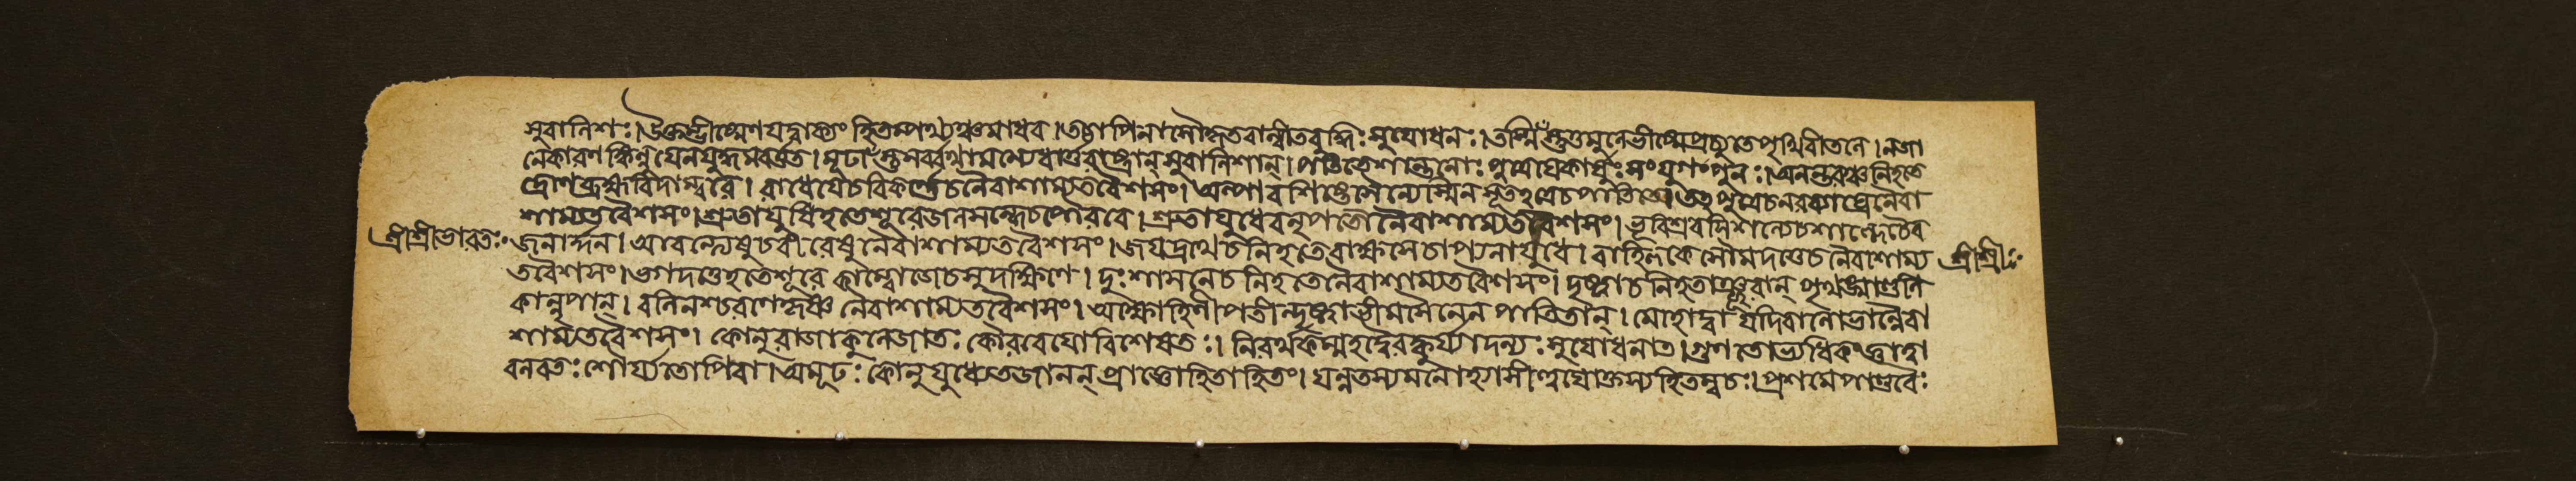 সুবানিশঃ। উক্তম্ভীষ্মেণ যদ্বাক্যং হিতম্পথ্যঞ্চ মাধব। তচ্চাপি নাসৌ কৃতবান্বীতবুদ্ধিঃ সুযোধনঃ। তস্মিঁস্তু তুমুলে ভীষ্মে প্রচ্যুতে পৃথিবীতলে। ন জা
নে কারণং কিন্নু যেন যুদ্ধমবর্ত্তত। মূঢাঁস্তু সর্ব্বথা মন্যে ধার্ত্তরাষ্ট্রান্ সুবালিশান্। পতিতে শান্তনোঃ পুত্রে যেকার্ষুঃ সংযুগং পুনঃ। অনন্তরঞ্চ নিহতে
দ্রোণে ব্রহ্মবিদাম্বরে। রাধেযে চ বিকর্ণে চ নৈবাশাম্যত বৈশসং। অল্পাবশিষ্টে সৈন্যেস্মিন্ সূতপুত্রে চ পাতিতে। সপুত্রে চ নরব্যাঘ্রে নৈবা
শাম্যত বৈশসং। শ্রুতাযুধি হতে শূরে জলসন্ধে চ পৌরবে। শ্রুতাযুধে চ নৃপতৌ নৈবাশাম্যত বৈশসং। ভূরিশ্রবসি শল্যে চ শাল্বে চৈব
শ্রীশ্রীভারতঃ জনার্দ্দন। আবন্ত্যেষু চ বীরেষু নৈবাশাম্যত বৈশসং। জযদ্রথে চ নিহতে রাক্ষসে চাপ্যলাযুধে। বাহ্লিকে সৌমদত্তে চ নৈবাশাম্য শ্রীশ্রীঃ
ত বৈশসং। ভগদত্তে হতে শূরে কাম্বোজে চ সুদক্ষিণে। দুঃশাসনে চ নিহতে নৈবাশাম্যত বৈশসং। দৃষ্ট্বা চ নিহতাঞ্ছূরান্ পৃথঙ্মাণ্ডলি
কান্নৃপান্। বলিনশ্চ রণে কৃষ্ণ নৈবাশাম্যত বৈশসং। অক্ষৌহিণীপতীন্দৃষ্ট্বা ভীমসেনেন পাতিতান্। মোহাদ্বা যদি বা লোভান্নৈবা
শাম্যত বৈশসং। কো নু রাজা কুলে জাতঃ কৌরবেযো বিশেষতঃ। নিরর্থকম্মহদ্বৈরঙ্কুর্য্যাদন্যঃ সুযোধনাৎ। গুণতোভ্যধিকং জ্ঞাত্বা
বলবতঃ শৌর্য্যতোপি বা। অমূঢঃ কো নু যুধ্যেত জানন্ প্রাজ্ঞো হিতাহিতং। যন্ন তস্য মনো হ্যাসীত্ত্বযোক্তস্য হিতম্বচঃ। প্রশমে পাণ্ডবৈঃ